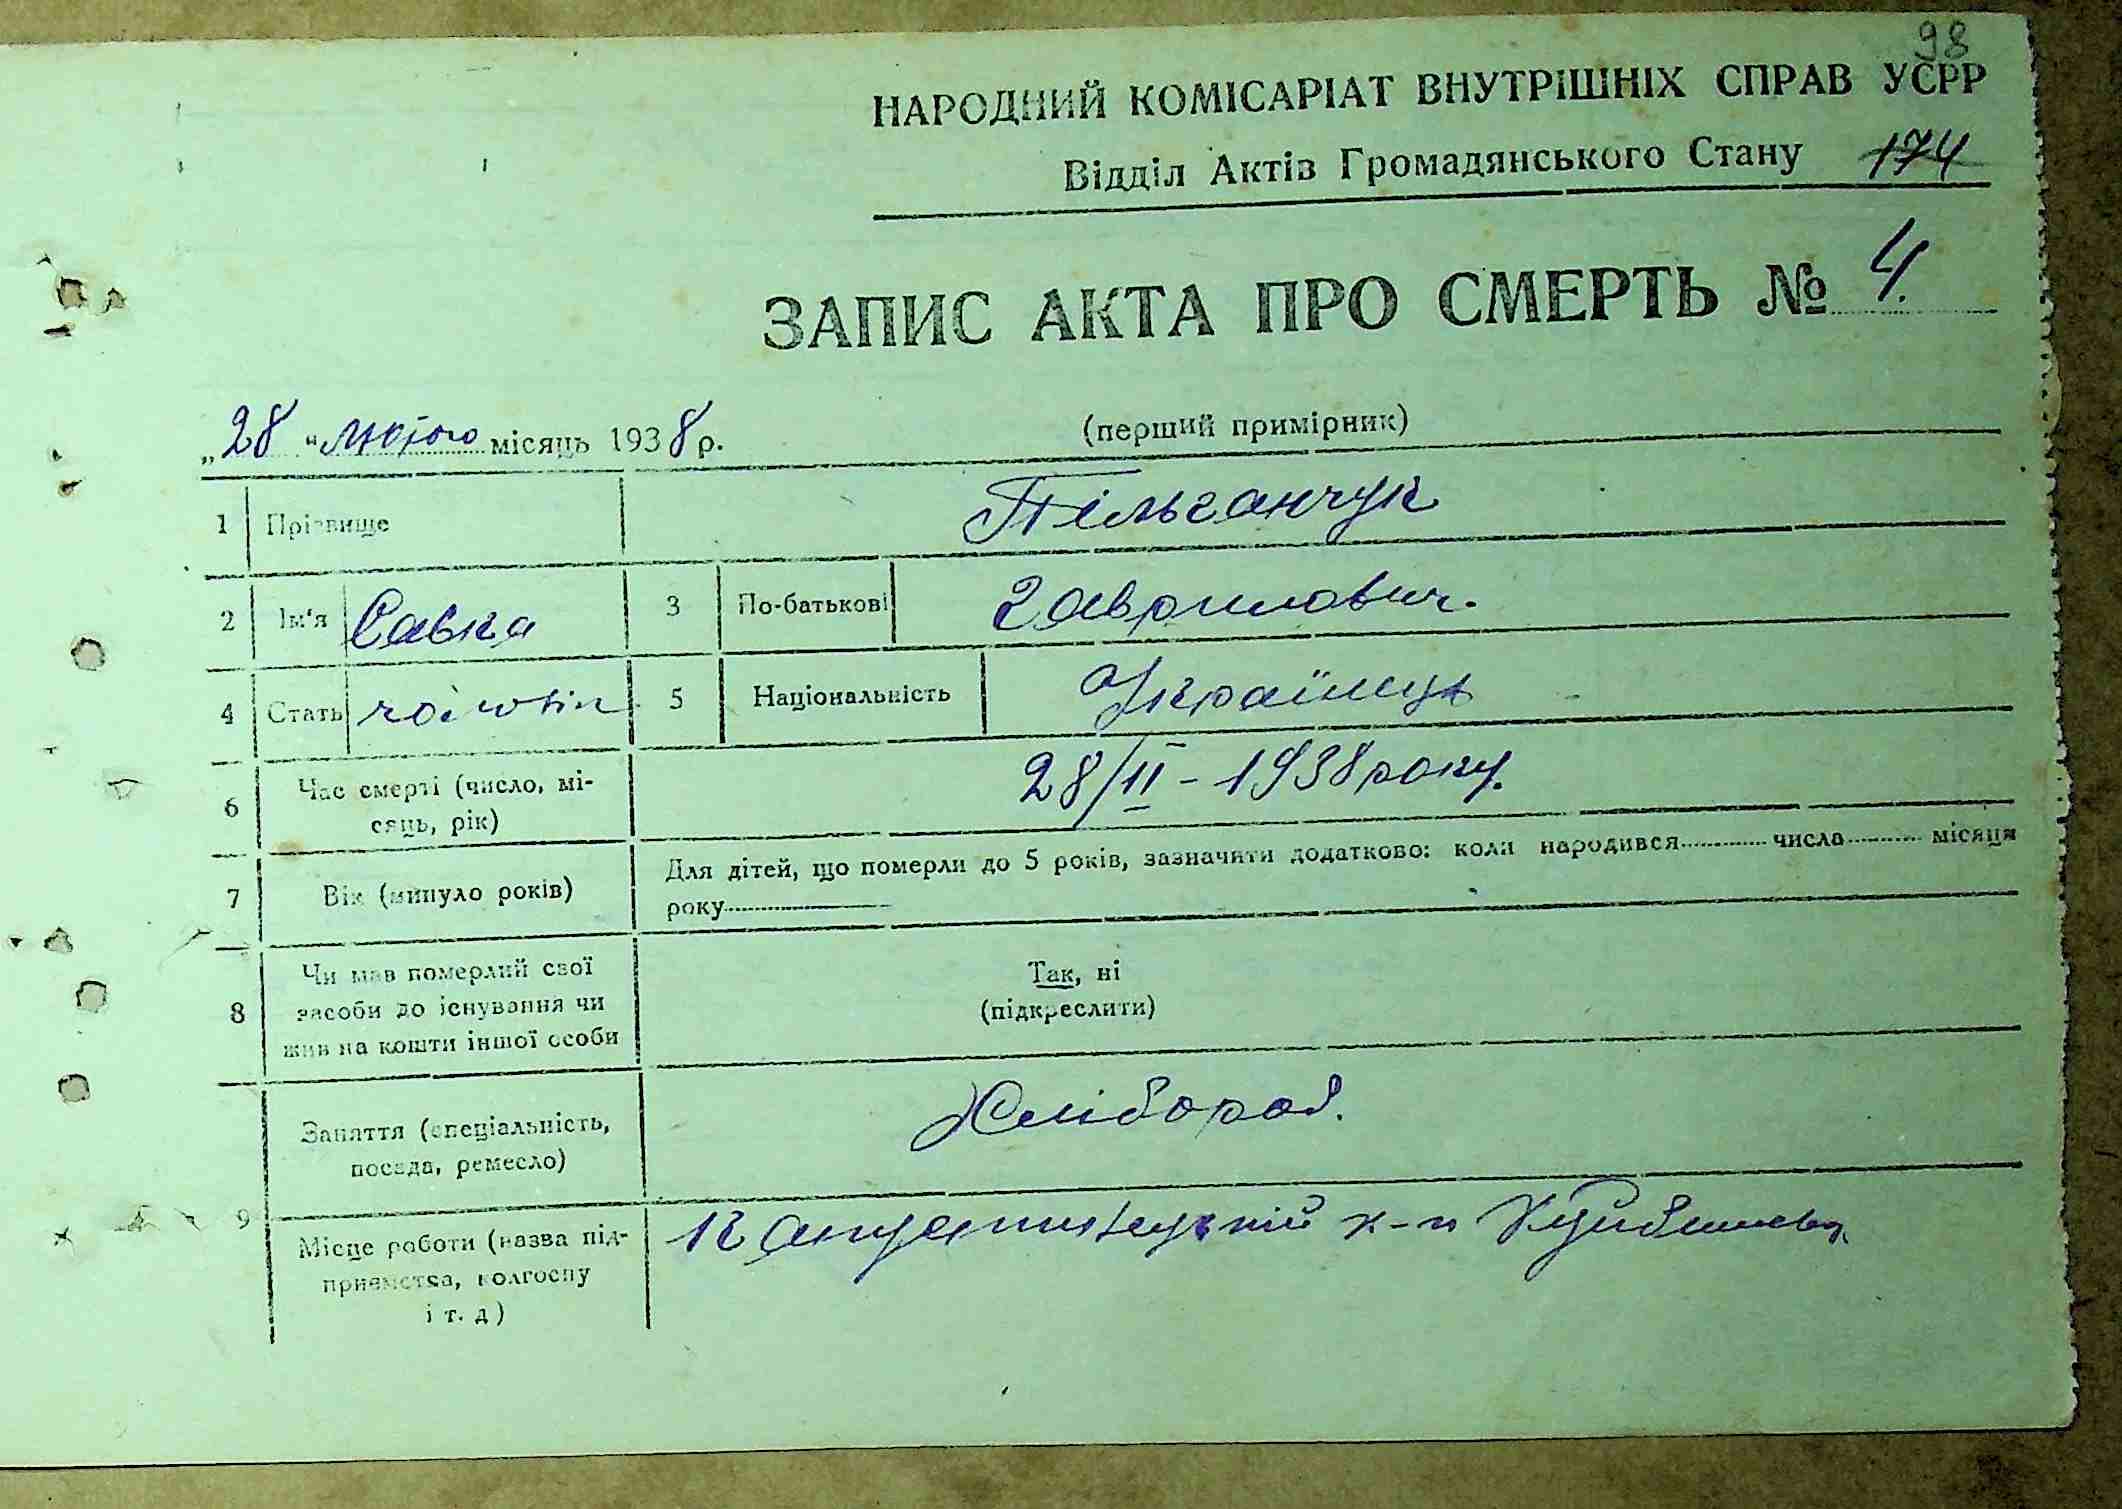 98
НАРОДНИЙ КОМІСАРІАТ ВНУТРІШНІХ СПРАВ УСРР
Відділ Актів Громадянського Стану 174
ЗАПИС АКТА ПРО СМЕРТЬ № 4.
„28 " лютого місяць 1938 р. (перший примірник)
1 Прізвище Пільганчук
2 Ім'я Савка 3 По-батькові Гаврилович.
4 Стать 5 Національність Українець
6 Час смерті (число, мі-
сяць, рік) 28/II - 1938 року.
7 Вік (минуло років) Для дітей, що померли до 5 років, зазначити додатково: коли народився числа місяця
року
8 Чи мав померлий свої
засоби до існування чи
жив на кошти іншої особи
Так, ні
(підкреслити)
9 Заняття (спеціальність,
посада, ремесло) Хлібороб.
Місце роботи (назва під-
приємства, колгоспу
і т. д)